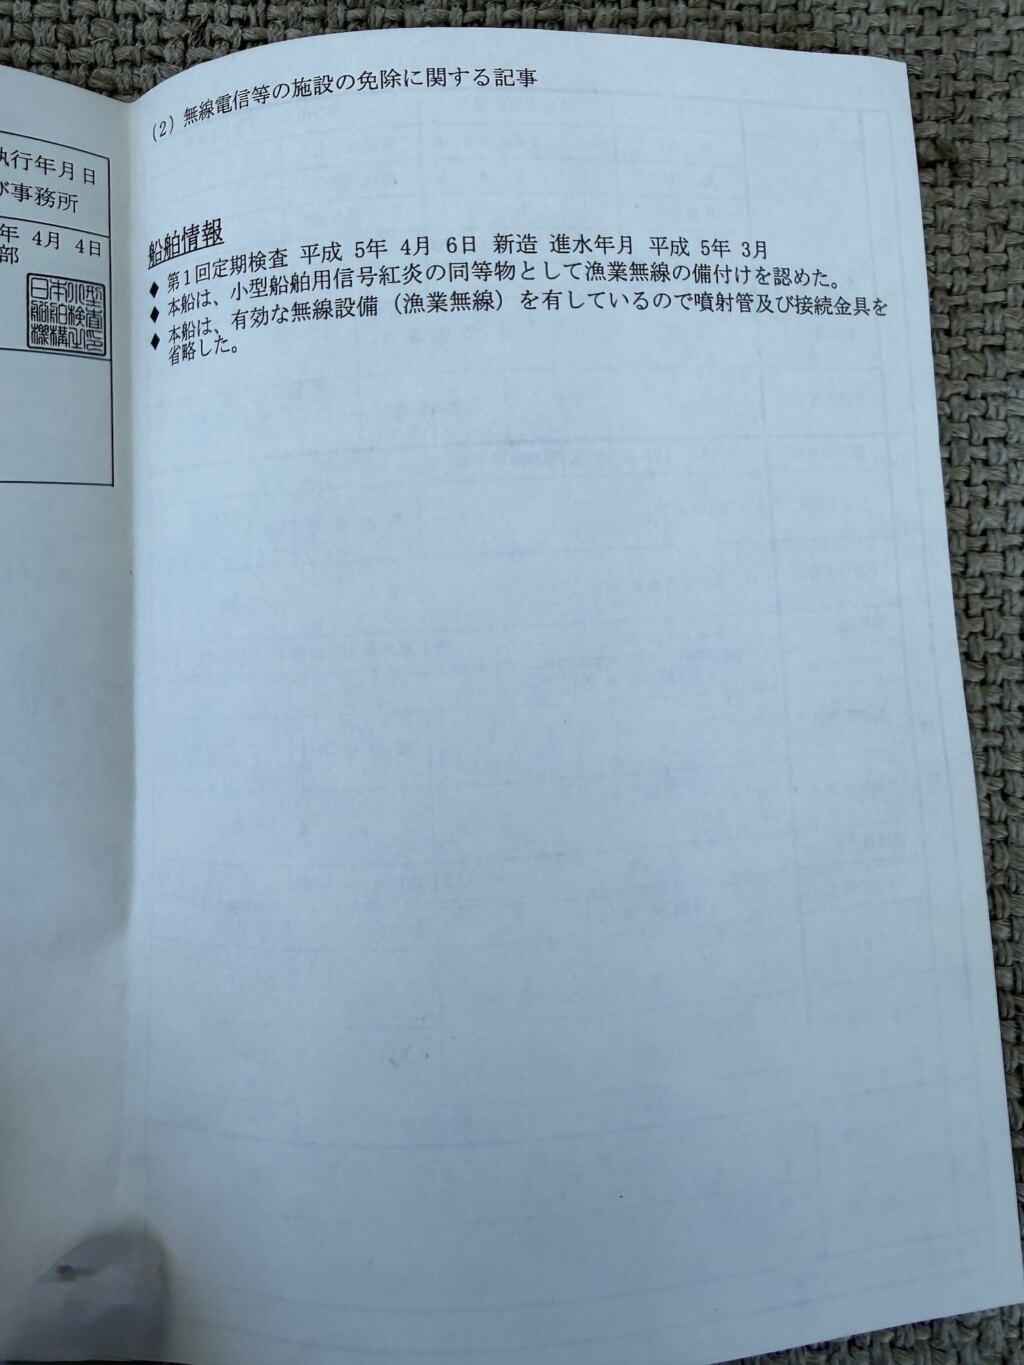 執行年月日
び事務所
年 4月 4日
部
日本小型
船舶検査
機構之印
(2) 無線電信等の施設の免除に関する記事
船舶情報
◆ 第1回定期検査 平成 5年 4月 6日 新造 進水年月 平成 5年 3月
◆ 本船は、小型船舶用信号紅炎の同等物として漁業無線の備付けを認めた。
◆ 本船は、有効な無線設備（漁業無線）を有しているので噴射管及び接続金具を
省略した。